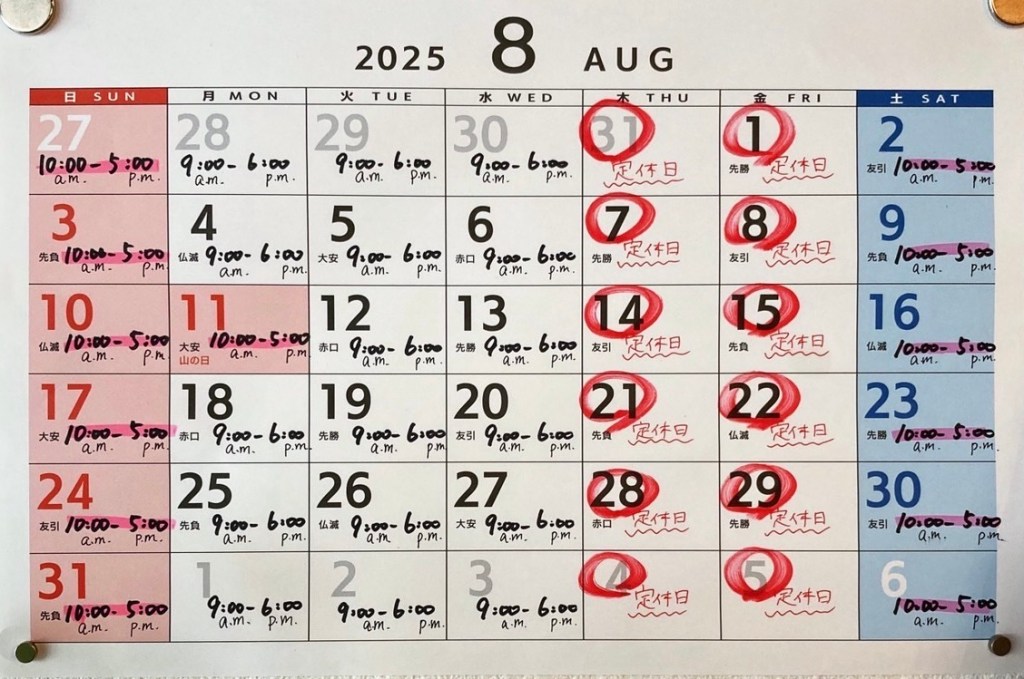 2025 8 AUG
日 SUN 月 MON 火 TUE 水 WED 木 THU 金 FRI 土 SAT
27 28 29 30 31 1 2
10:00-5:00 9:00-6:00 9:00-6:00 9:00-6:00 定休日 先勝 定休日 友引 10:00-5:00
a.m. p.m. a.m. p.m. a.m. p.m. a.m. p.m. a.m. p.m.
3 4 5 6 7 8 9
先負 10:00-5:00 仏滅 9:00-6:00 大安 9:00-6:00 赤口 9:00-6:00 先勝 定休日 友引 定休日 先負 10:00-5:00
a.m. p.m. a.m. p.m. a.m. p.m. a.m. p.m. a.m. p.m.
10 11 12 13 14 15 16
仏滅 10:00-5:00 大安 10:00-5:00 赤口 9:00-6:00 先勝 9:00-6:00 友引 定休日 先負 定休日 仏滅 10:00-5:00
a.m. p.m. 山の日 a.m. p.m. a.m. p.m. a.m. p.m. a.m. p.m.
17 18 19 20 21 22 23
大安 10:00-5:00 赤口 9:00-6:00 先勝 9:00-6:00 友引 9:00-6:00 先負 定休日 仏滅 定休日 先勝 10:00-5:00
a.m. p.m. a.m. p.m. a.m. p.m. a.m. p.m. a.m. p.m.
24 25 26 27 28 29 30
友引 10:00-5:00 先負 9:00-6:00 仏滅 9:00-6:00 大安 9:00-6:00 赤口 定休日 先勝 定休日 友引 10:00-5:00
a.m. p.m. a.m. p.m. a.m. p.m. a.m. p.m. a.m. p.m.
31 1 2 3 4 5 6
先負 10:00-5:00 9:00-6:00 9:00-6:00 9:00-6:00 定休日 定休日 10:00-5:00
a.m. p.m. a.m. p.m. a.m. p.m. a.m. p.m. a.m. p.m.